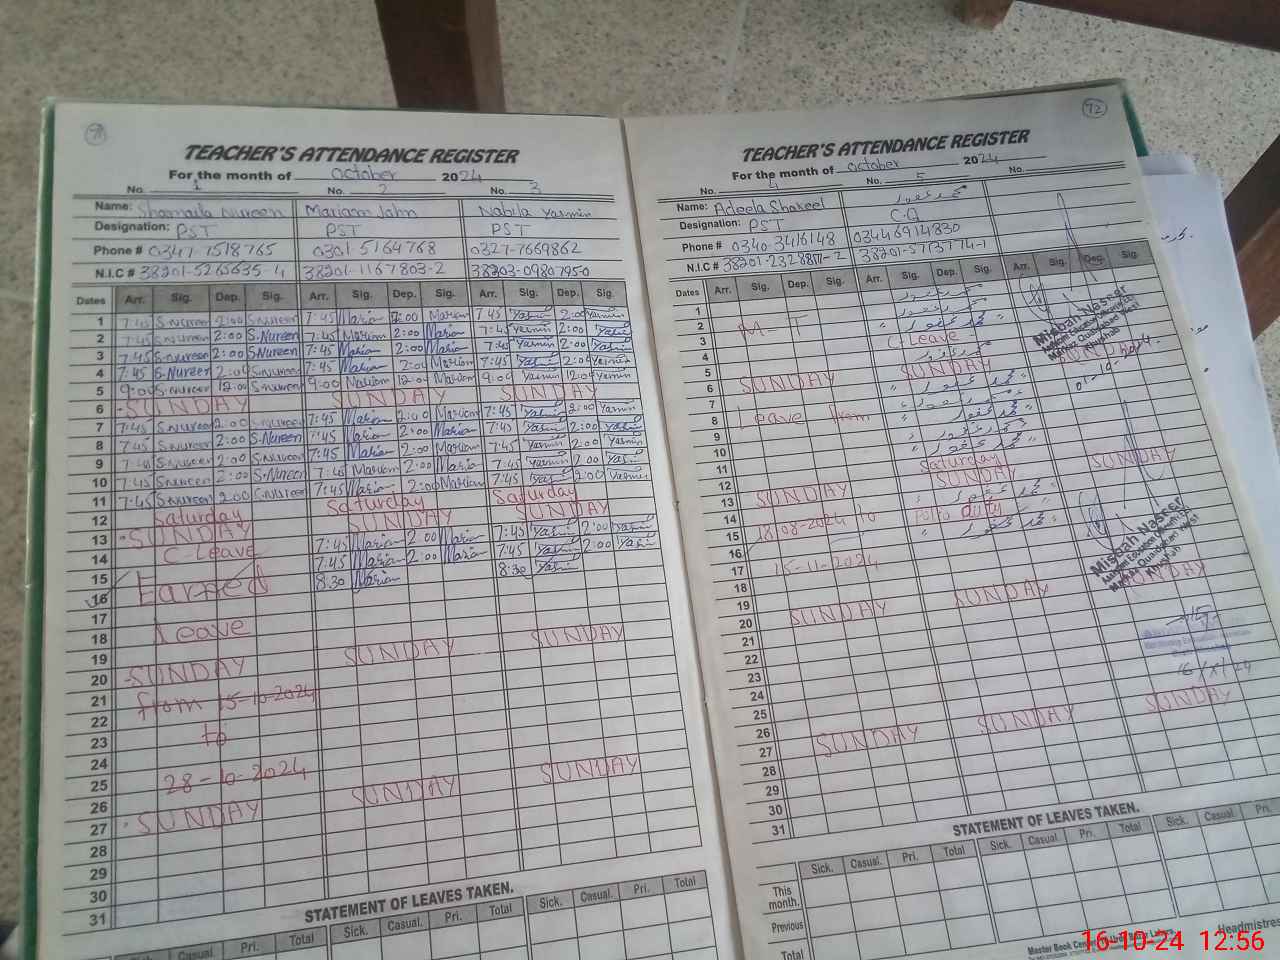 71
TEACHER'S ATTENDANCE REGISTER
For the month of October 2024
No. 1 No. 2 No. 3
Name: Shamaila Nureen Mariam Jahn Nabila Yasmin
Designation: PST PST PST
Phone # 0347-7518765 0301-5164768 0327-7669862
N.I.C # 38201-5265635-4 38201-1167803-2 38203-0980795-0
Dates Arr. Sig. Dep. Sig. Arr. Sig. Dep. Sig. Arr. Sig. Dep. Sig.
1 7:45 S.Nureen 2:00 S.Nureen 7:45 Mariam 2:00 Mariam 7:45 Yasmin 2:00 Yasmin
2 7:45 S.Nureen 2:00 S.Nureen 7:45 Mariam 2:00 Mariam 7:45 Yasmin 2:00 Yasmin
3 7:45 S.Nureen 2:00 S.Nureen 7:45 Mariam 2:00 Mariam 7:45 Yasmin 2:00 Yasmin
4 7:45 S.Nureen 2:00 S.Nureen 7:45 Mariam 2:00 Mariam 7:45 Yasmin 2:00 Yasmin
5 9:00 S.Nureen 12:00 S.Nureen 9:00 Mariam 12:00 Mariam 9:00 Yasmin 12:00 Yasmin
6 SUNDAY SUNDAY SUNDAY
7 7:45 S.Nureen 2:00 S.Nureen 7:45 Mariam 2:00 Mariam 7:45 Yasmin 2:00 Yasmin
8 7:45 S.Nureen 2:00 S.Nureen 7:45 Mariam 2:00 Mariam 7:45 Yasmin 2:00 Yasmin
9 7:45 S.Nureen 2:00 S.Nureen 7:45 Mariam 2:00 Mariam 7:45 Yasmin 2:00 Yasmin
10 7:45 S.Nureen 2:00 S.Nureen 7:45 Mariam 2:00 Mariam 7:45 Yasmin 2:00 Yasmin
11 7:45 S.Nureen 2:00 S.Nureen 7:45 Mariam 2:00 Mariam 7:45 Yasmin 2:00 Yasmin
12 Saturday Saturday Saturday
13 SUNDAY SUNDAY SUNDAY
14 C-Leave 7:45 Mariam 2:00 Mariam 7:45 Yasmin 2:00 Yasmin
15 Earned 7:45 Mariam 2:00 Mariam 7:45 Yasmin 2:00 Yasmin
16 8:30 Mariam 8:30 Yasmin
17
18 Leave
19
20 SUNDAY SUNDAY SUNDAY
21 from 15-10-2024
22
23 to
24
25 28-10-2024
26
27 SUNDAY SUNDAY SUNDAY
28
29
30
31
STATEMENT OF LEAVES TAKEN.
Casual. Pri. Total Sick. Casual. Pri. Total Sick. Casual. Pri. Total
72
TEACHER'S ATTENDANCE REGISTER
For the month of October 2024
No. 4 No. 5 No.
Name: Adeela Shakeel
Designation: PST C.A
Phone # 0340-3416148 03446914830
N.I.C # 38201-5773774-1
Dates Arr. Sig. Dep. Sig. Arr. Sig. Dep. Sig. Arr. Sig. Dep. Sig.
1
2 M-T
3 C-Leave
4
5
6 SUNDAY SUNDAY SUNDAY
7
8 Leave from
9
10
11
12 Saturday
13 SUNDAY SUNDAY SUNDAY
14
15 18-08-2024 to Polio duty
16
17 15-11-2024
18
19
20 SUNDAY SUNDAY SUNDAY
21
22
23
24
25
26
27 SUNDAY SUNDAY SUNDAY
28
29
30
31
Misbah Naseer
Misbah Naseer
Khushab
16/X/24
STATEMENT OF LEAVES TAKEN.
Sick. Casual. Pri. Total Sick. Casual. Pri. Total Sick. Casual. Pri.
This month.
Previous
Total
Headmistress
16-10-24 12:56